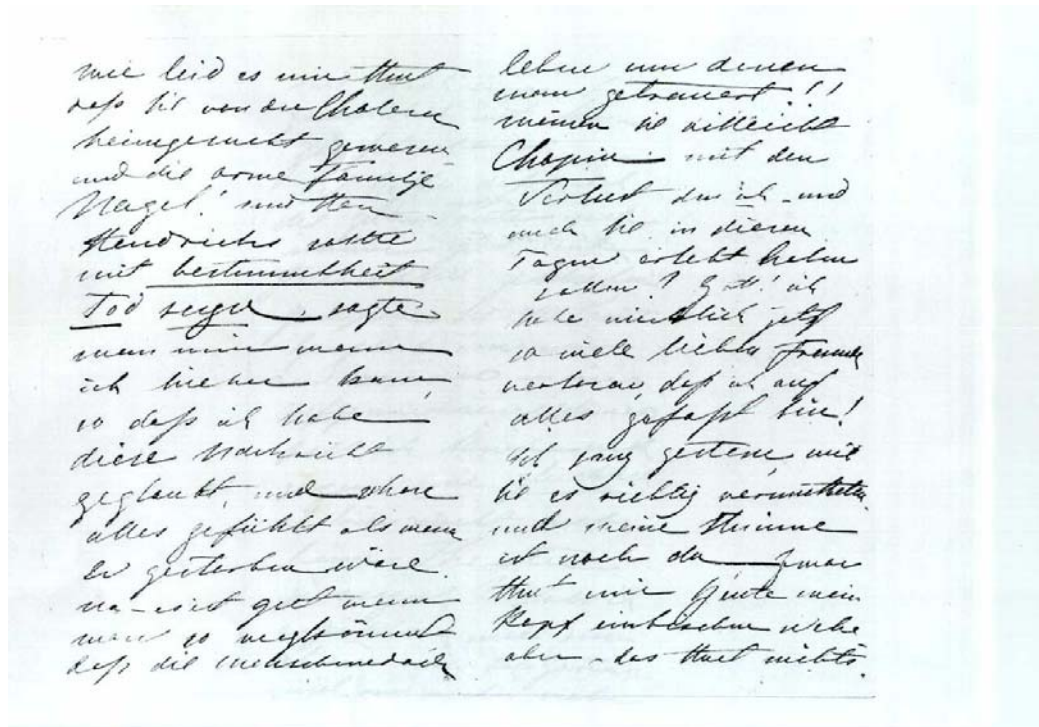 wie leid es mir thut
daß Sie von der Cholera
heimgesucht gewesen
und die arme Familie
Nagel!
Hendrichs sollte
mit bestimmtheit
Tod seyn, sagte
man mir wenn
ich hieher kam,
so daß ich habe
diese Nachricht
geglaubt, und schon
alles gefühlt als wenn
Er gestorben wäre.
na - es ist gut wenn
man so
daß die menschen
leben um denen
man getrauert!!
meinen Sie vielleicht
Chopin mit den
Verlust den ich und
auch Sie in diesen
Tagen erlebt haben
sollen? Gott! ich
habe wirklich jetzt
so viele lieben Freunde
verloren, daß ich auf
alles gefaßt bin!
Ich sang gestern, wie
Sie es richtig vermutheten
und meine Stimme
ist noch da zwar
thut mir heute mein
Kopf ein bischen wehe
aber das thut nichts.